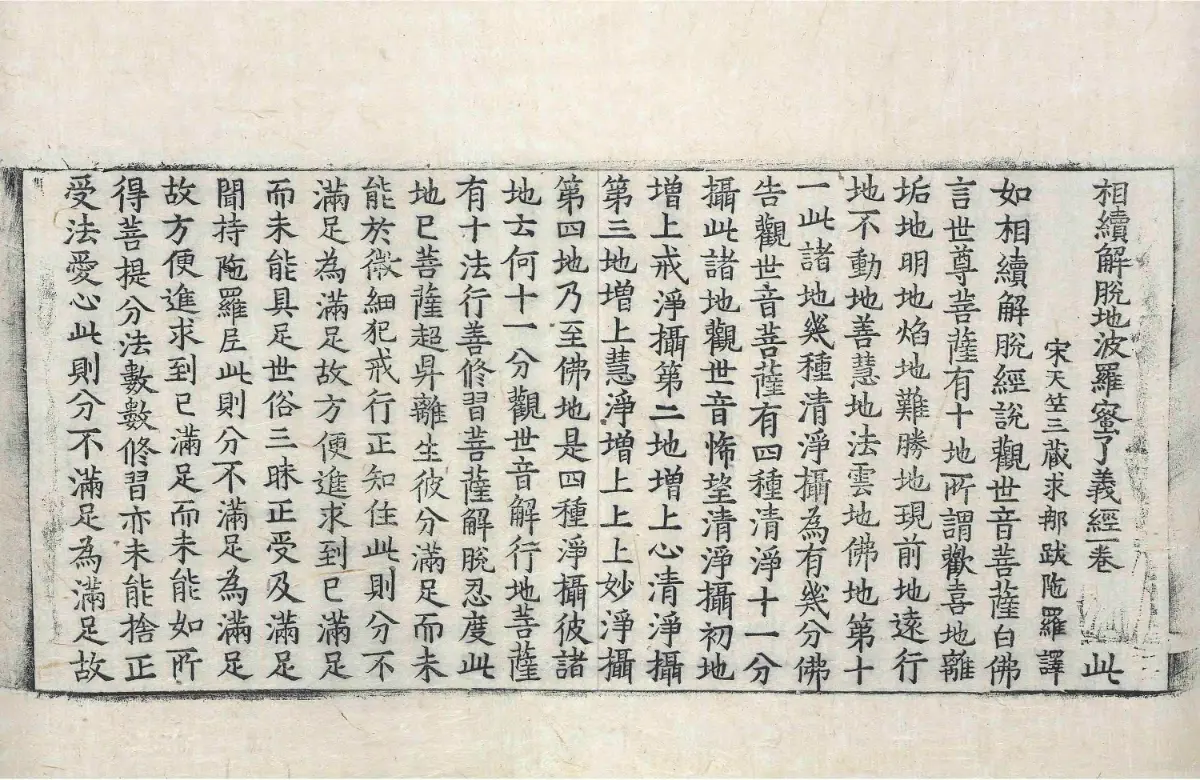 相續解脫地波羅蜜了義經一卷 此
宋天竺三藏求那跋陁羅譯
如相續解脫經說觀世音菩薩白佛
言世尊菩薩有十地所謂歡喜地離
垢地明地焰地難勝地現前地遠行
地不動地善慧地法雲地佛地第十
一此諸地幾種清淨攝為有幾分佛
告觀世音菩薩有四種清淨十一分
攝此諸地觀世音悕望清淨攝初地
增上戒淨攝第二地增上心清淨攝
第三地增上慧淨增上上上妙淨攝
第四地乃至佛地是四種淨攝彼諸
地云何十一分觀世音解行地菩薩
有十法行善修習菩薩解脫忍度此
地已菩薩超昇離生彼分滿足而未
能於微細犯戒行正知住此則分不
滿足為滿足故方便進求到已滿足
而未能具足世俗三昧正受及滿足
聞持陁羅尼此則分不滿足為滿足
故方便進求到已滿足而未能如所
得菩提分法數數修習亦未能捨正
受法愛心此則分不滿足為滿足故